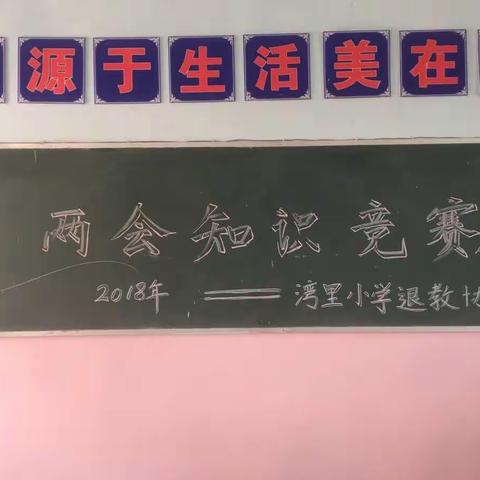 源于生活美在
两会知识竞赛
2018年——湾里小学退教协